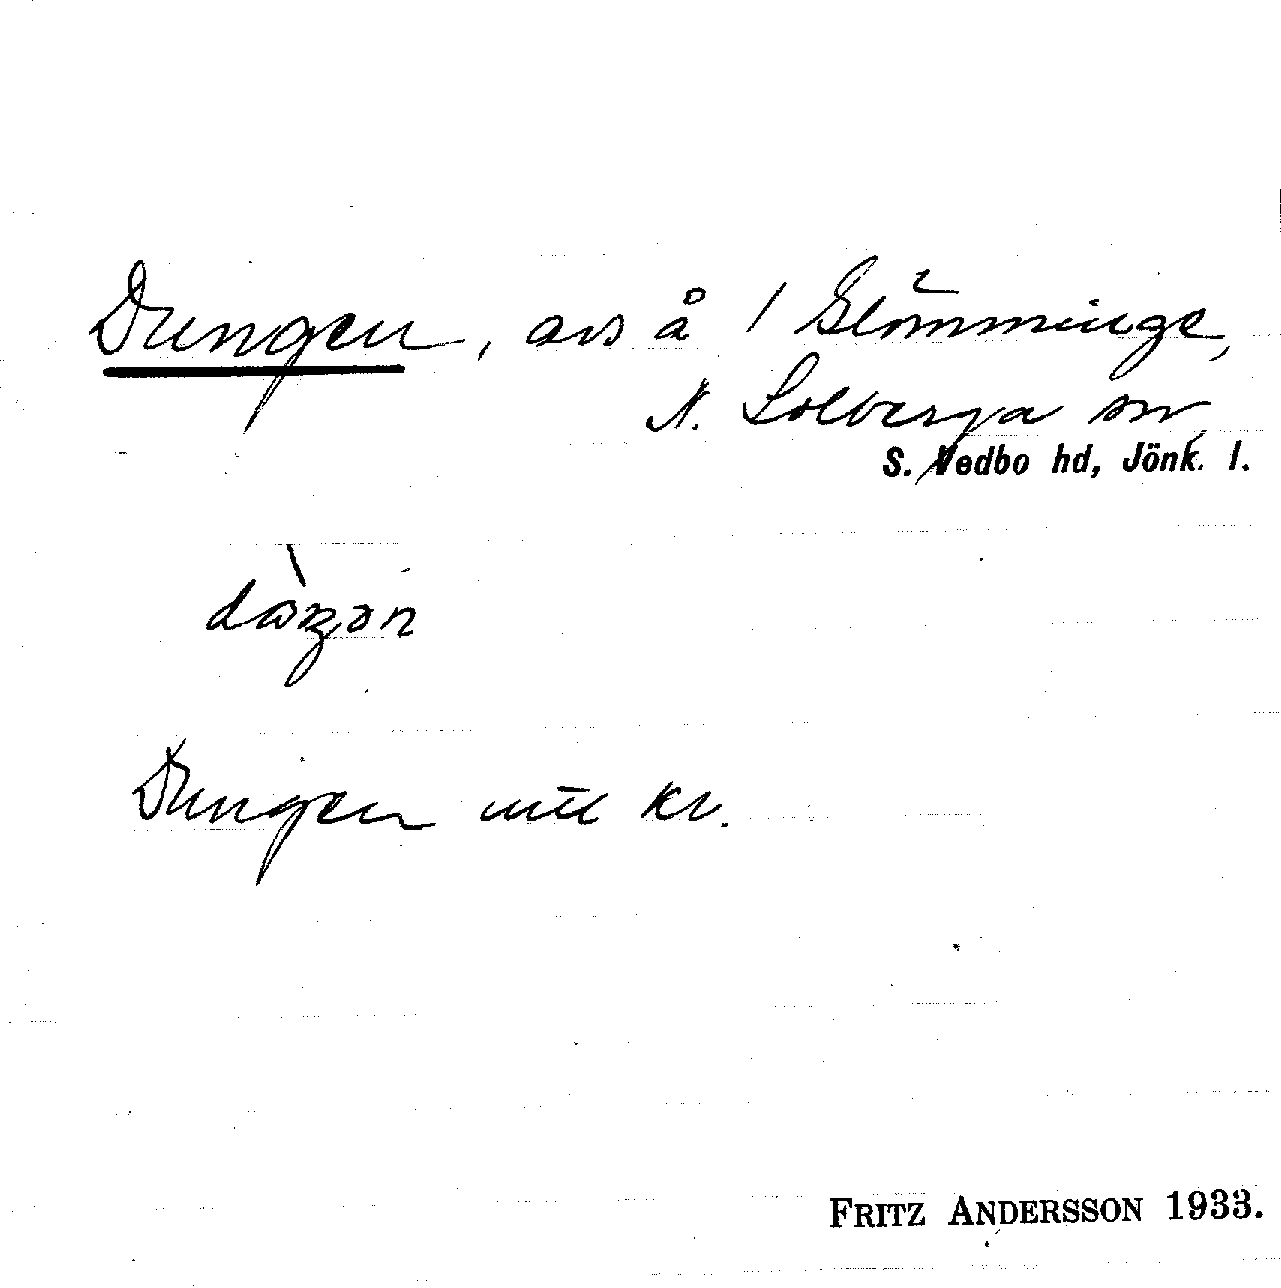 Dungen, avs å 1 Glömminge,
N. Solberga sn,
S. Vedbo hd, Jönk. l.
Dungen utl kv.
FRITZ ANDERSSON 1933.